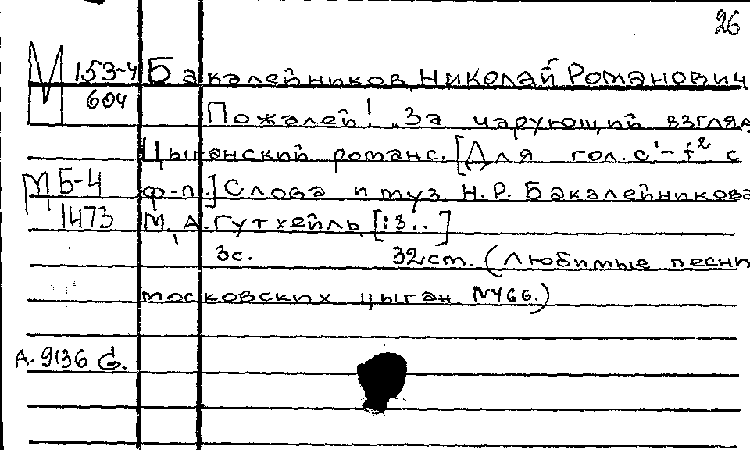 26
М 153-4 Бакалейников, Николай Романович
604 Пожалей! За чарующий взгляд
Цыганский романс. [Для гол. c¹-f² с
М Б-4 ф-п.] Слова и муз. Н.Р. Бакалейникова
1473 М., А. Гутхейль,
3с. 32 ст. (Любимые песни
московских цыган №466.)
А. 9136 G.